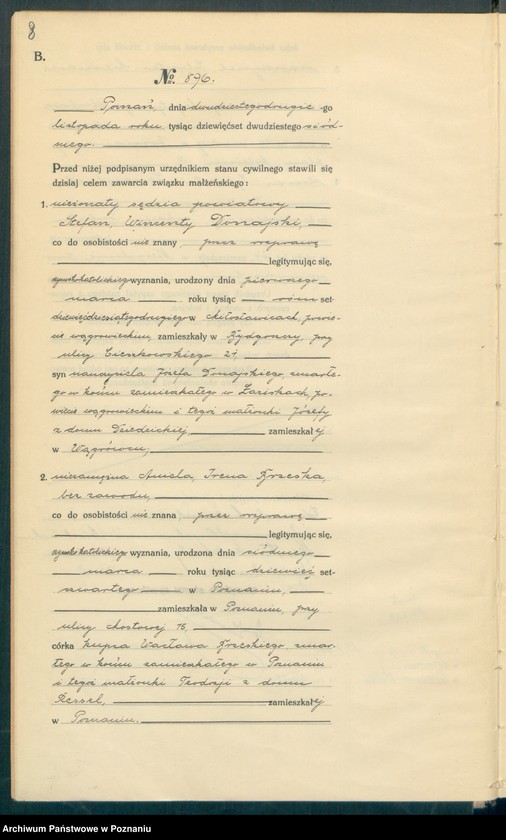 8
B.
№. 896.
Poznań, dnia dwudziestegodrugie -go
listopada roku tysiąc dziewięćset dwudziestego siód-
mego.
Przed niżej podpisanym urzędnikiem stanu cywilnego stawili się
dzisiaj celem zawarcia związku małżeńskiego:
1. nieżonaty sędzia powiatowy
Stefan, Wincenty Donajski,
co do osobistości nie znany, przez
legitymując się,
wyznania, urodzony dnia pierwszego
marca roku tysiąc ósm set-
dziewięćdziesiątegodrugiego w Miłosławicach, powie-
cie wągrowieckim, zamieszkały w Bydgoszczy, przy
ulicy Cieszkowskiego 21,
syn nauczyciela Józefa Donajskiego, zmarłe-
go w końcu zamieszkałego w Łaziskach, po-
wiecie wągrowieckim i tegoż małżonki Józefy
z domu zamieszkałej
w Wągrówcu;
2. niezamężna Aniela, Irena Krzeska,
bez zawodu,
co do osobistości nie znana przez
legitymując się,
wyznania, urodzona dnia siódmego
marca roku tysiąc dziewięć set-
czwartego w Poznaniu,
zamieszkała w Poznaniu, przy
ulicy Mostowej 15,
córka kupca Wacława Krzeskiego, zmar-
łego w końcu zamieszkałego w Poznaniu
i tegoż małżonki Teodozji z domu
Ressel, zamieszkałej
w Poznaniu.
Archiwum Państwowe w Poznaniu